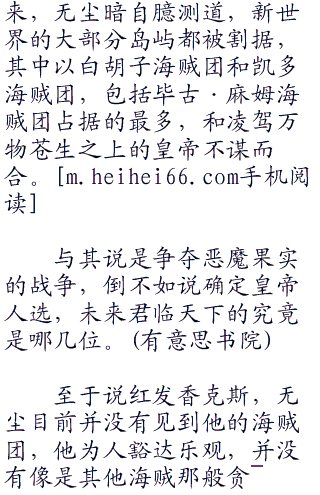 来，无尘暗自臆测道，新世
界的大部分岛屿都被割据，
其中以白胡子海贼团和凯多
海贼团，包括毕古·麻姆海
贼团占据的最多，和凌驾万
物苍生之上的皇帝不谋而
合。[m.heihei66.com手机阅
读]
与其说是争夺恶魔果实
的战争，倒不如说确定皇帝
人选，未来君临天下的究竟
是哪几位。(有意思书院)
至于说红发香克斯，无
尘目前并没有见到他的海贼
团，他为人豁达乐观，并没
有像是其他海贼那般贪